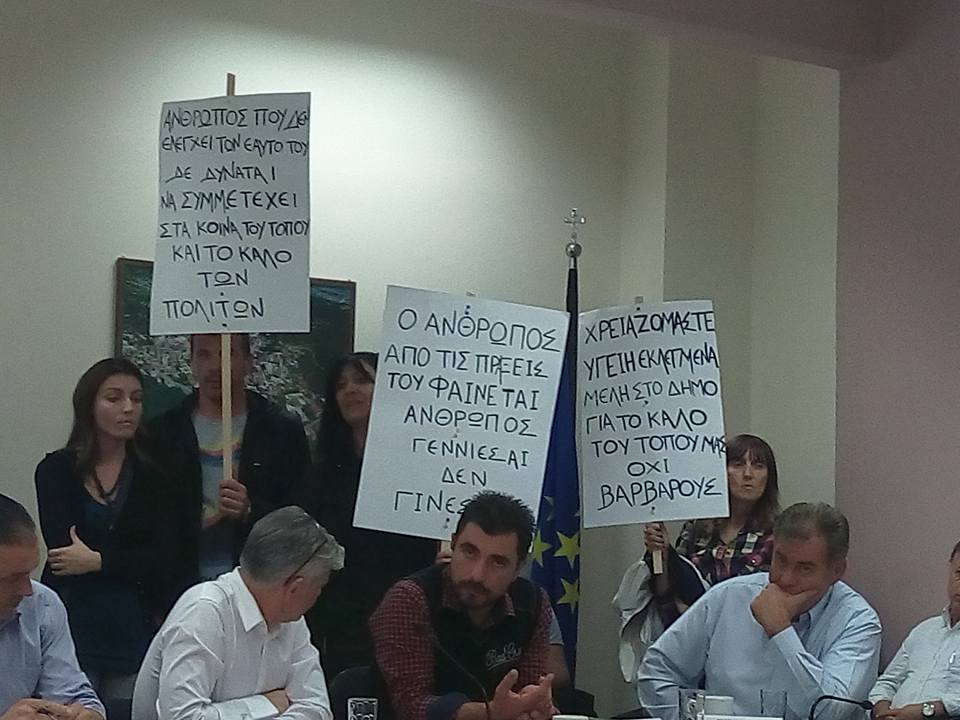 ΑΝΘΡΩΠΟΣ ΠΟΥ ΔΕΝ
ΕΛΕΓΧΕΙ ΤΟΝ ΕΑΥΤΟ ΤΟΥ
ΔΕ ΔΥΝΑΤΑΙ
ΝΑ ΣΥΜΜΕΤΕΧΕΙ
ΣΤΑ ΚΟΙΝΑ ΤΟΥ ΤΟΠΟΥ
ΚΑΙ ΤΟ ΚΑΛΟ
ΤΩΝ
ΠΟΛΙΤΩΝ
Ο ΑΝΘΡΩΠΟΣ
ΑΠΟ ΤΙΣ ΠΡΞΕΙΣ
ΤΟΥ ΦΑΙΝΕΤΑΙ
ΑΝΘΡΩΠΟΣ
ΓΕΝΝΙΕΣΑΙ
ΔΕΝ
ΧΡΕΙΑΖΟΜΑΣΤΕ
ΥΓΕΙΗ ΕΚΛΕΓΜΕΝΑ
ΜΕΛΗ ΣΤΟ ΔΗΜΟ
ΓΙΑ ΤΟ ΚΑΛΟ
ΤΟΥ ΤΟΠΟΥ ΜΑΣ
ΟΧΙ
ΒΑΡΒΑΡΟΥΣ